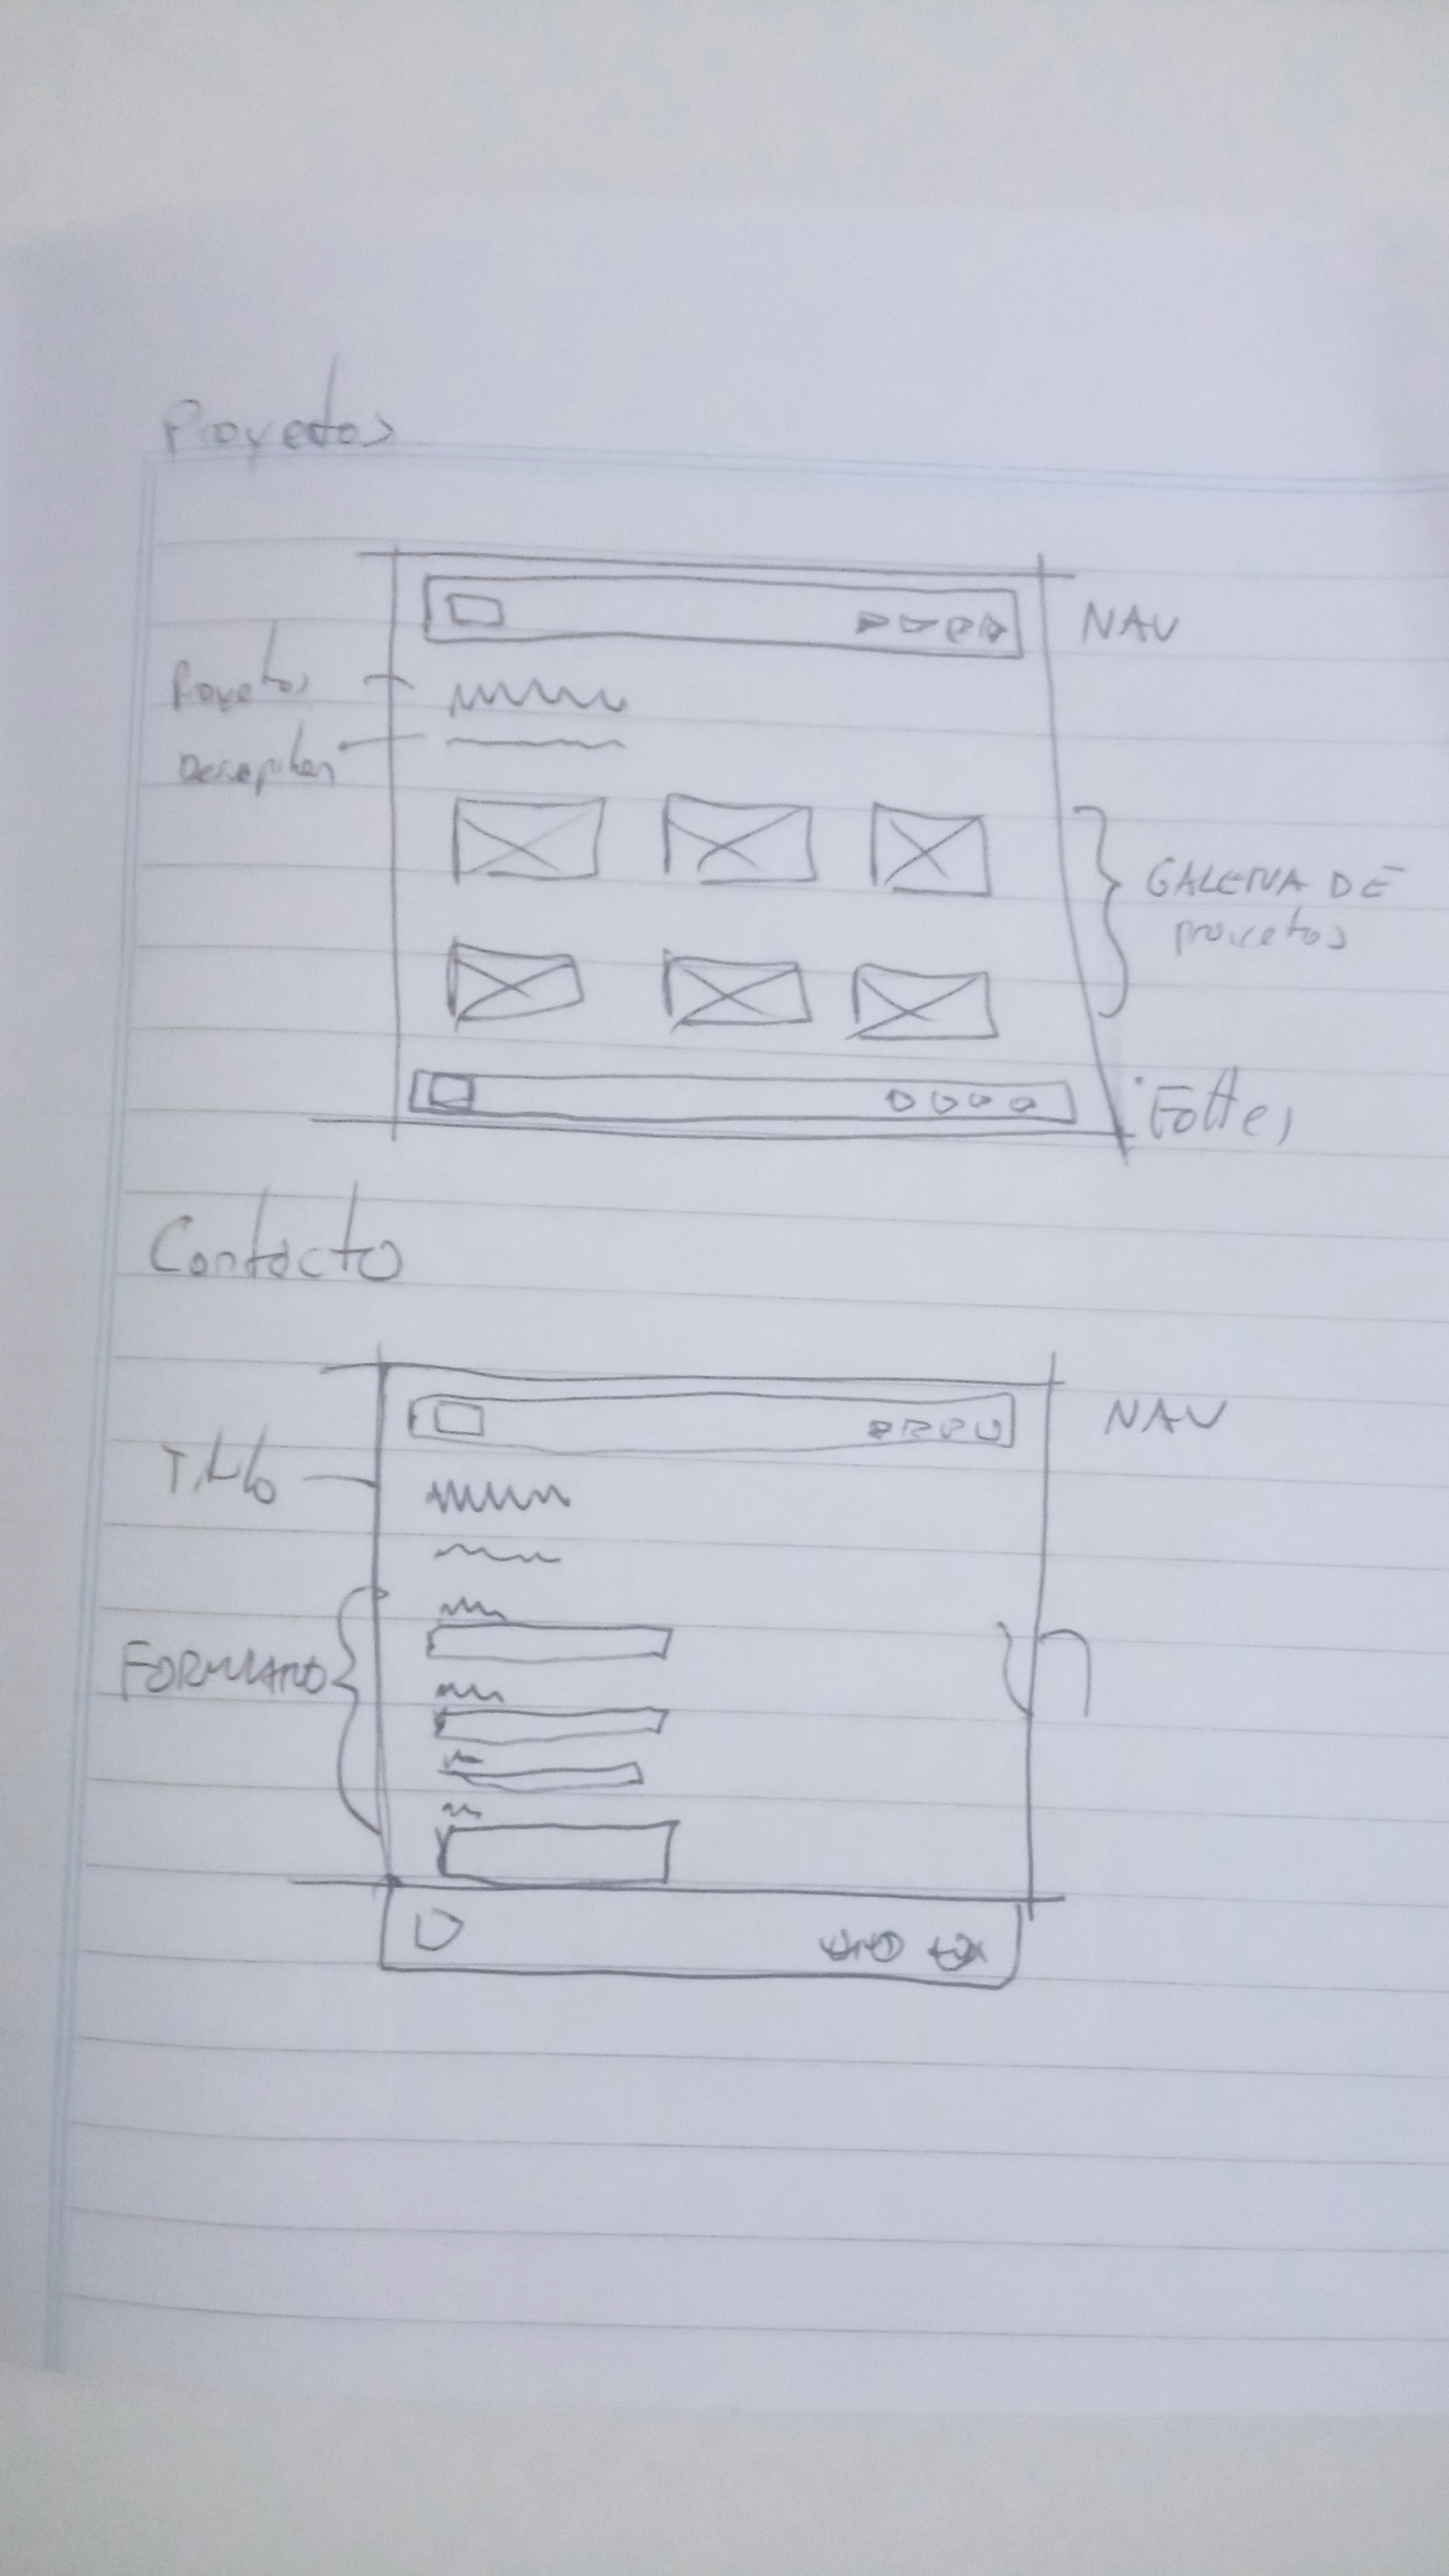 Proyectos
NAV
Proyectos
Descripcion
GALERIA DE
proyectos
Footer
Contacto
NAV
Titulo
FORMULARIO